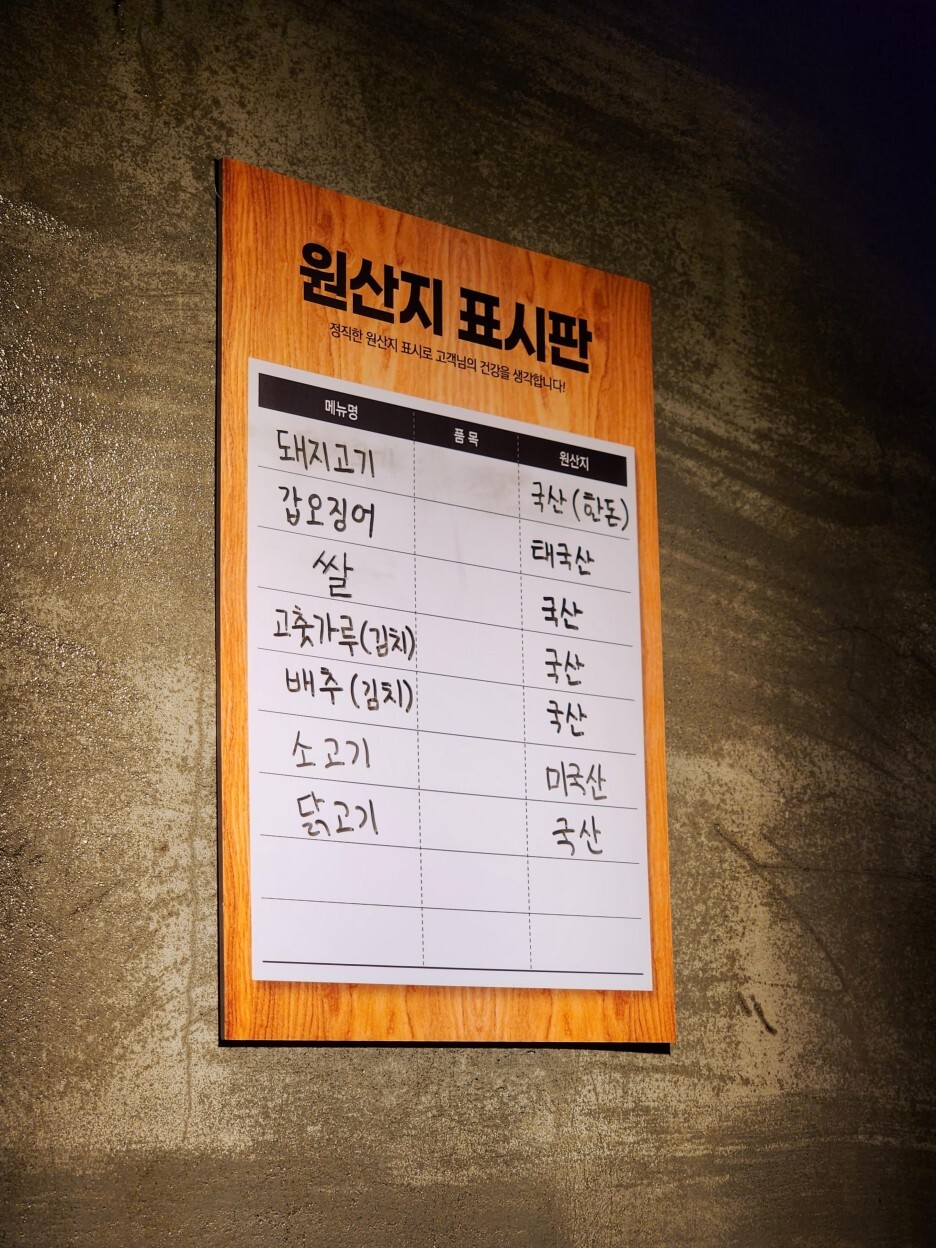 원산지 표시판
정직한 원산지 표시로 고객님의 건강을 생각합니다!
메뉴명 품목 원산지
돼지고기 국산(한돈)
갑오징어 태국산
쌀 국산
고춧가루(김치) 국산
배추(김치) 국산
소고기 미국산
닭고기 국산